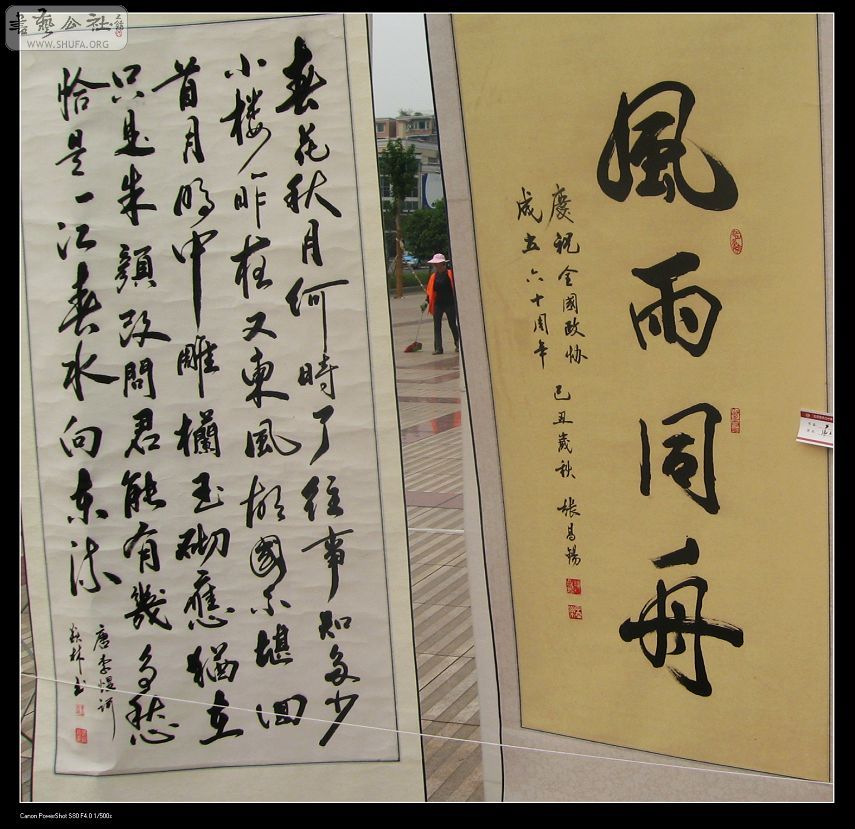 書藝公社
WWW.SHUFA.ORG
春花秋月何時了往事知多少
小楼昨夜又東風故國不堪回
首月明中雕欄玉砌應猶在
只是朱顔改問君能有幾多愁
恰是一江春水向东流
唐李煜词
風雨同舟
慶祝全國政协
成立六十周年
己丑歲秋 張昌锡
Canon PowerShot S80 F4.0 1/500s